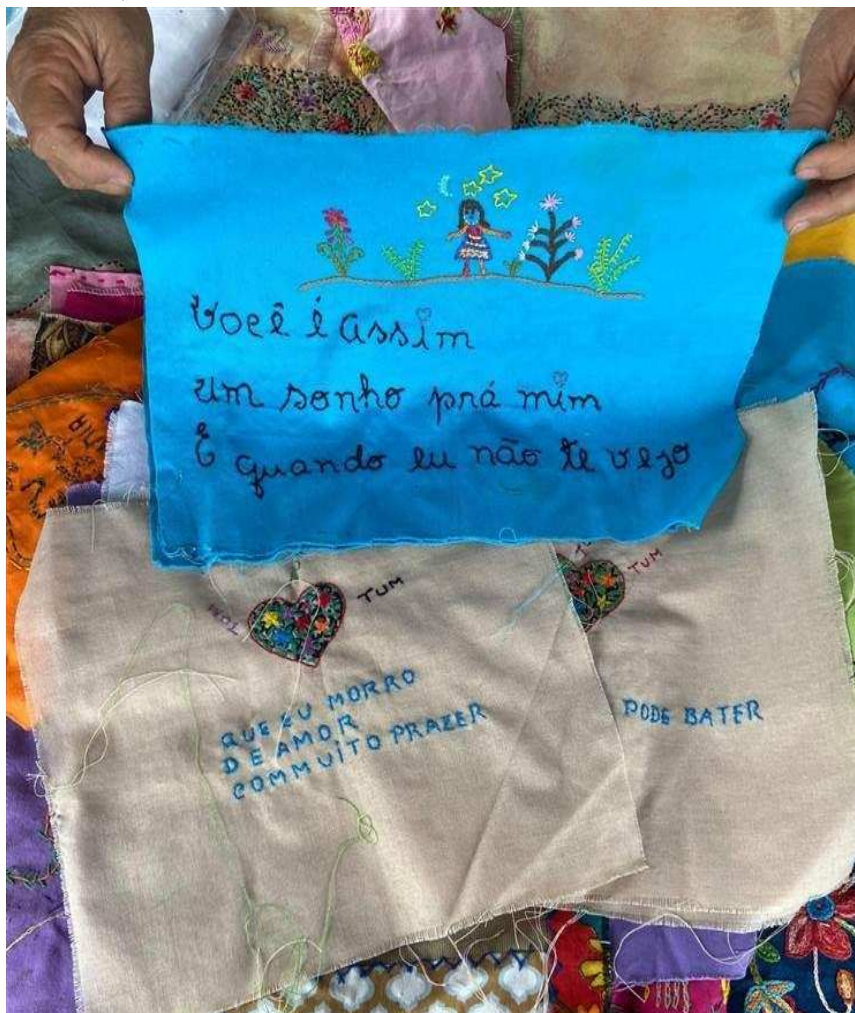 Você é assim
um sonho prá mim
E quando eu não te vejo
TUM TUM
QUE EU MORRO
DE AMOR
COM MUITO PRAZER
TUM
PODE BATER